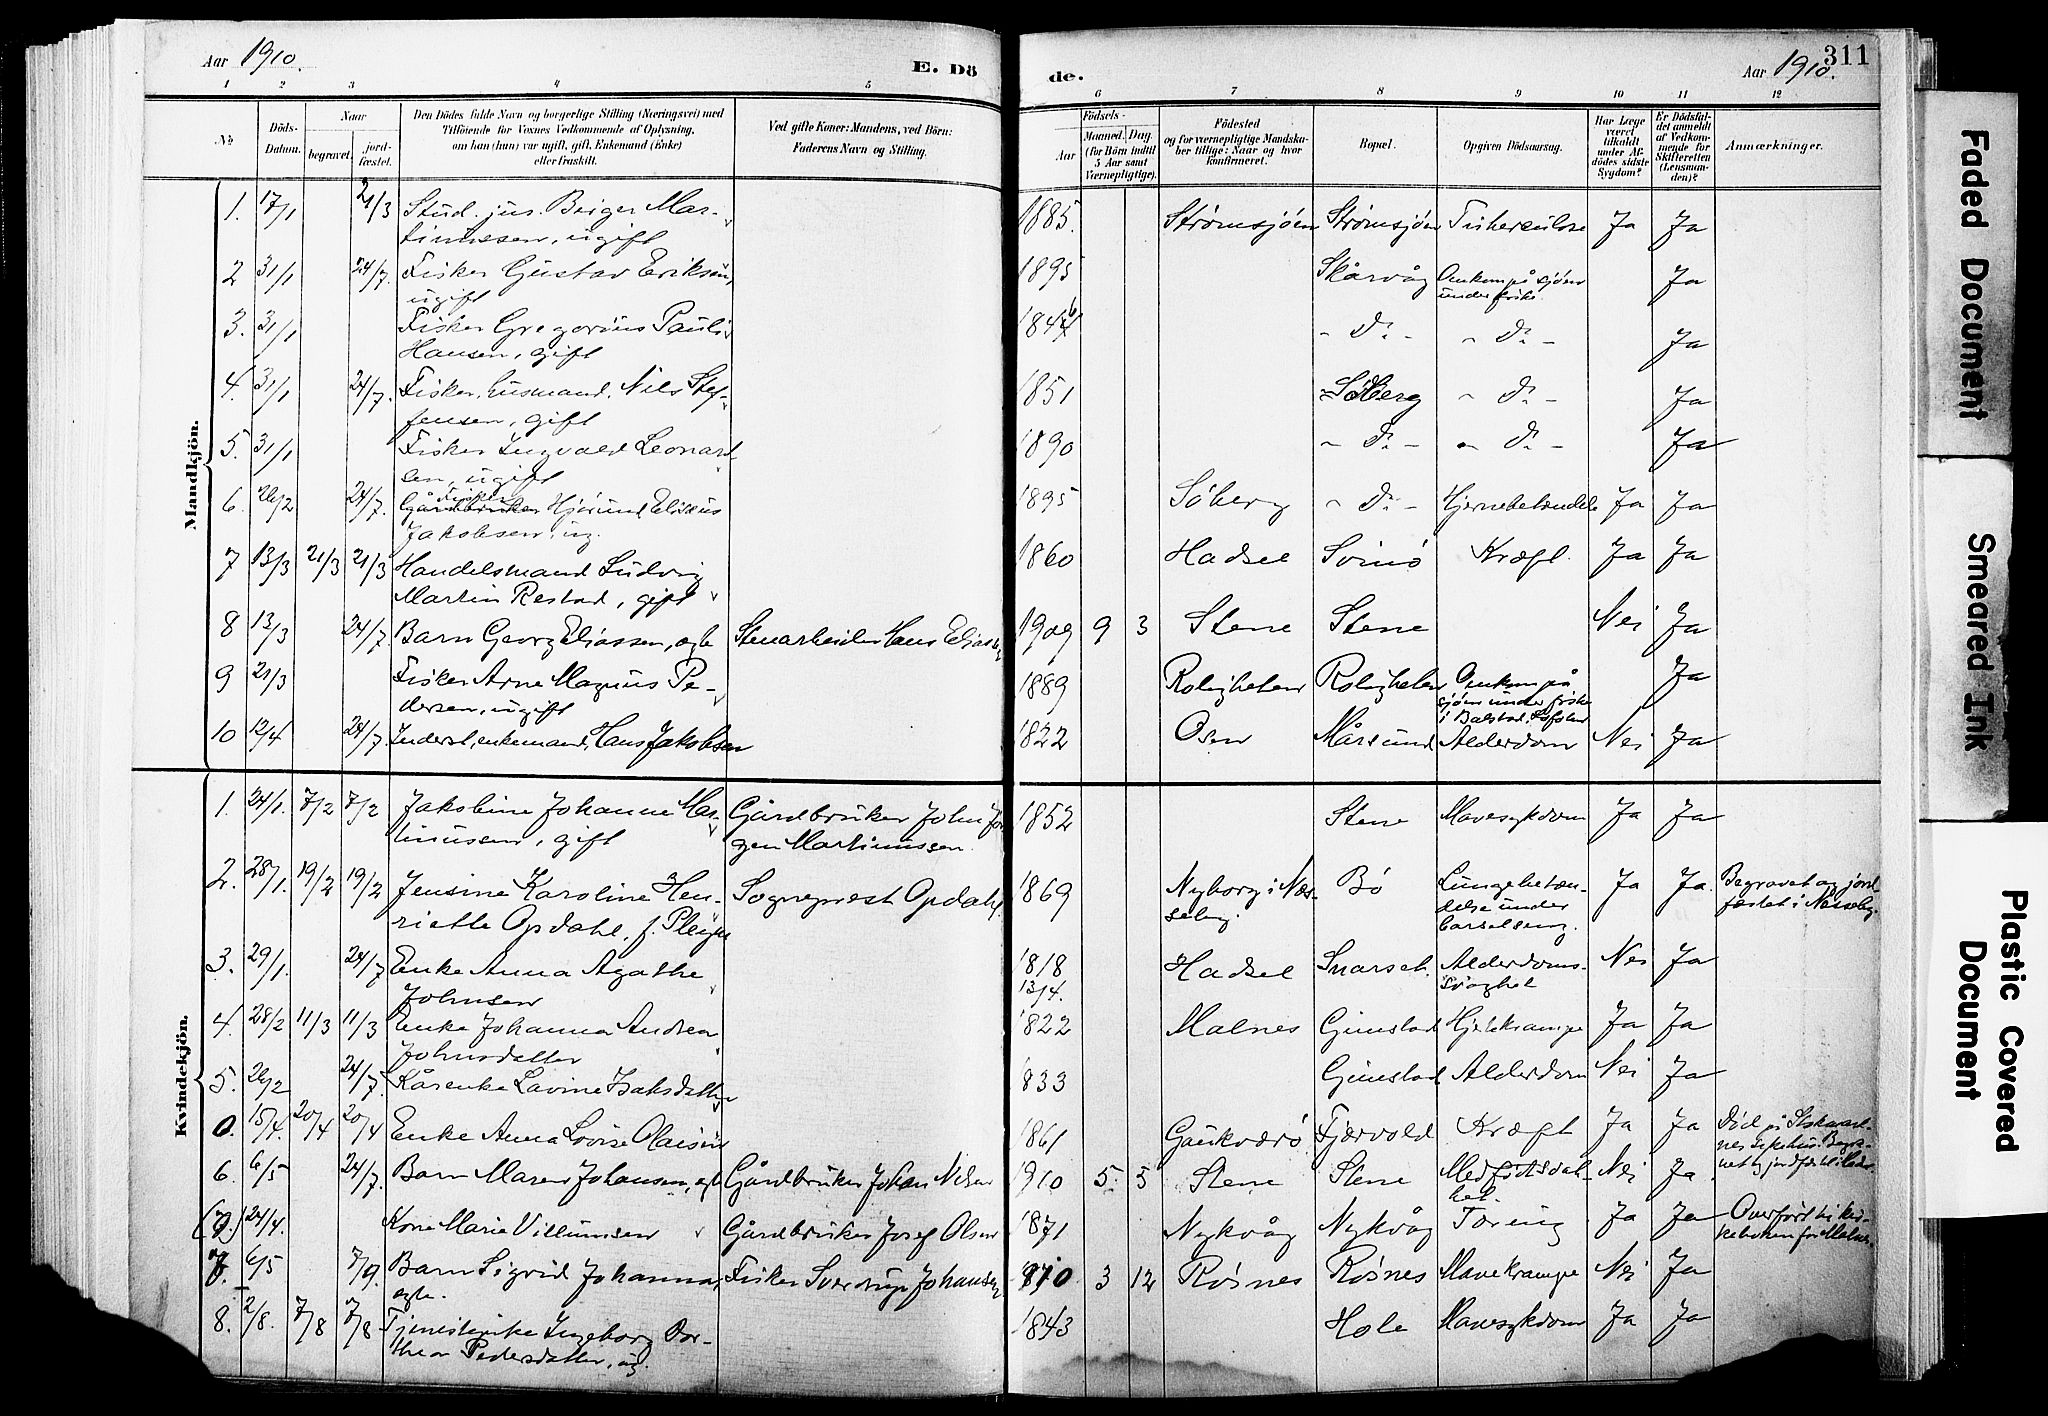 Aar 1910.
E. Dö
de.
Aar 1910.
311
1 2 3 4 5 6 7 8 9 10 11 12
No
Döds-Datum.
Naar
begravet.
jord-fæstet.
Den Dödes fulde Navn og borgerlige Stilling (Næringsvei) med
Tilföiende for Voxnes Vedkommende af Oplysning,
om han (hun) var ugift, gift, Enkemand (Enke)
eller fraskilt.
Ved gifte Koner: Mandens, ved Börn:
Faderens Navn og Stilling.
Födsels-
Aar
Maaned. Dag.
(for Börn indtil
5 Aar samt
Værnepligtige).
Födested
og for værnepligtige Mandska-
ber tillige: Naar og hvor
konfirmeret.
Bopæl.
Opgiven Dödsaarsag.
Har Læge
været
tilkaldt
under Af-
dödes sidste
Sygdom?
Er Dödsfal-
det anmeldt
af Vedkom-
mende for
Skifteretten
(Lensman-
den)?
Anmærkninger.
Mandkjön.
1. 17/1 21/3 Stud. jus. Birger Mar- 1885. Strømsjøen Strømsjøen Tuberculose Ja Ja
tinussen, ugift
2 31/1 24/7. Fisker Gustav Eriksen, 1895 Skårvåg Omkom på sjøen Ja
ugift under fiske.
3. 31/1 Fisker Gregorius Pauli - D: - - D: - Ja
Hansen, gift
4. 31/1 24/7. Fisker, husmand, Nils Stef- 1851 Søberg - D: - Ja
fensen, gift
5. 31/1 Fisker Ingvald Leonard- 1890 - D: - - D: - Ja
sen, ugift
6. 26/2 24/7. Fisker Hjørund Elisæus 1895 Søberg - D: - Hjernebetændelse Ja Ja
Jakobsen, ug.
7 13/3 21/3 21/3 Handelsmand Ludvig 1860 Hadsel Svinø Kræft. Ja Ja
Martin Restad, gift
8 13/3 24/7. Barn Georg Eliassen, egte Stenarbeider Hans Eliassen 1909 9 3 Stene Stene Nei Ja
9 21/3 Fisker Arne Magnus Pe- 1889 Rolighelen Rolighelen Omkom på Ja
dersen, ugift sjøen under fiske
i Balstad, Lofoten
10 12/4 24/7. Inderst, enkemand, Hans Jakobsen 1822 Osen Mårsund Alderdom Nei Ja
Kvindekjön.
1. 24/1. 7/2 7/2 Jakobine Johanne Mar- Gårdbruker John Jør- 1852 Stene Mavesykdom Ja Ja
tinussen, gift gen Martinussen.
2. 28/1. 19/2 19/2 Jensine Karoline Hen- Sogneprest Opdahl. 1869 Nyborg i Næs- Bø Lungebetæn- Ja Ja. Begravet og jord
riette Opdahl, f. seby. delse under fæstet i Næsseby.
barselseng.
3. 29/1. 24/7 Enke Anna Agathe 1818 Hadsel Snarset. Alderdoms- Nei Ja
Johnsen 13/4. svaghet
4. 28/2 11/3 11/3 Enke Johanna Andrea 1822 Malnes Gunstad Hjertekrampe Ja Ja
Johnsdatter
5. 26/2 24/7. Kårenke Lavine Isaksdatter 1833 Gunstad Alderdom Nei Ja
0. 15/4. 20/4 20/4 Enke Anna Lovise Olaisen 1861 Gaukværø Fjærvold Kræft Ja Ja Død på Stokmark-
nes sykehus. Begra-
vet og jordfæstet i Hadsel.
6. 6/5 24/7. Barn Maren Johansen, egte Gårdbruker Johan Nilsen 1910 5. 5 Stene Stene Medfødt svak- Nei Ja
het.
24/4. Kone Marie Villumsen Gårdbruker Josef Olsen 1871 Nykvåg Nykvåg Tæring Ja Ja Overført til kir-
keboken for Malnes.
7. 6/5 7/9. Barn Sigrid Johanna, Fisker Sverdrup Johansen 1910 3 12 Røsnes Røsnes Mavekrampe Nei Ja
egte.
8. 2/8. 7/8 7/8 Tjenestepike Ingeborg Dor- 1843 Hole Mavesykdom Ja Ja
thea Pedersdatter, ug.
Faded Document
Smeared Ink
Plastic Covered
Document